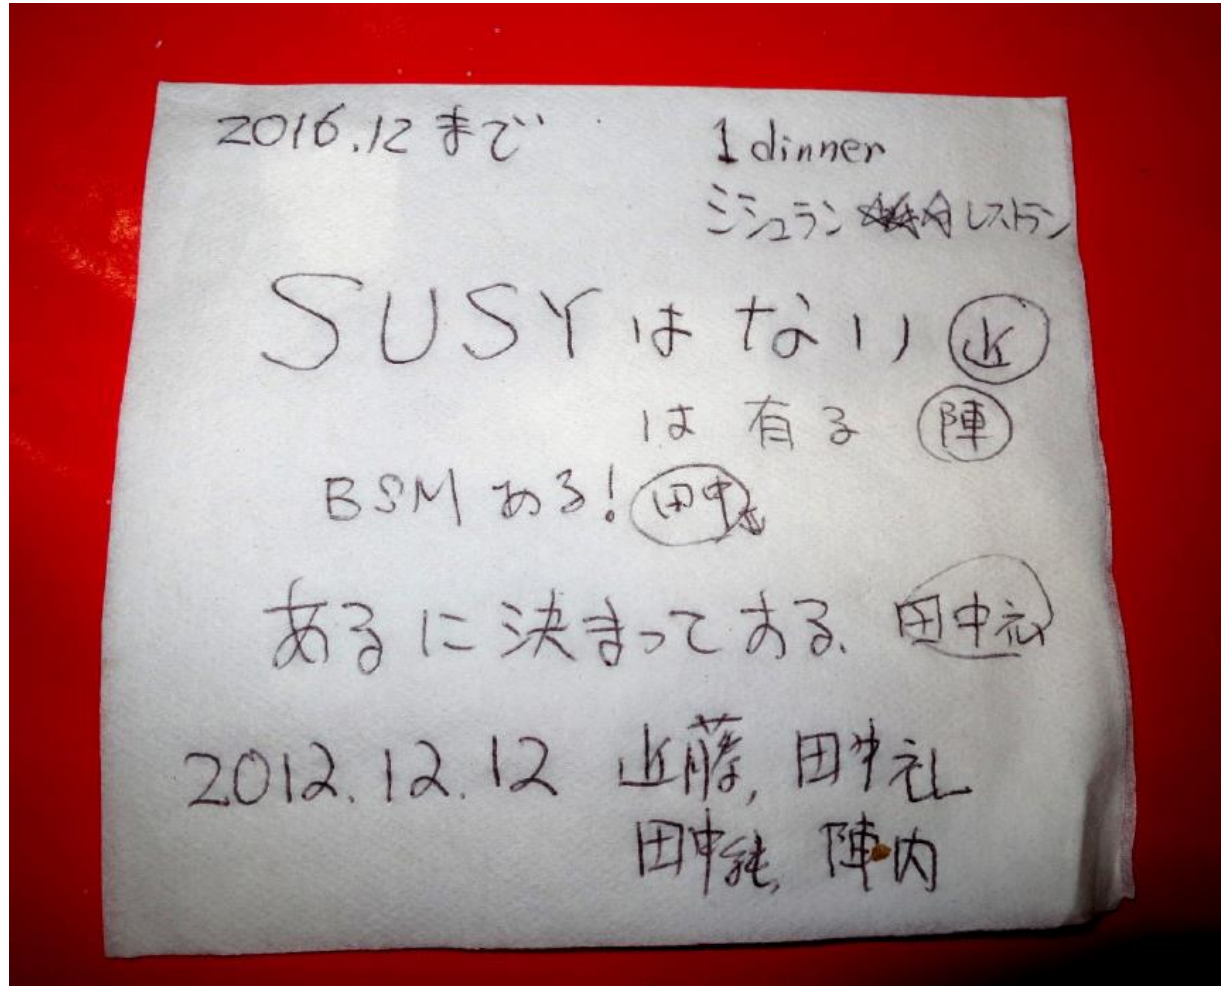 2016.12 まで
1 dinner
ミシュラン ☆☆☆ レストラン
SUSY は ない 近
は 有る 陣
BSM ある! 田中
あるに決まってある. 田中礼
2012.12.12 近藤, 田中礼
田中純, 陣内